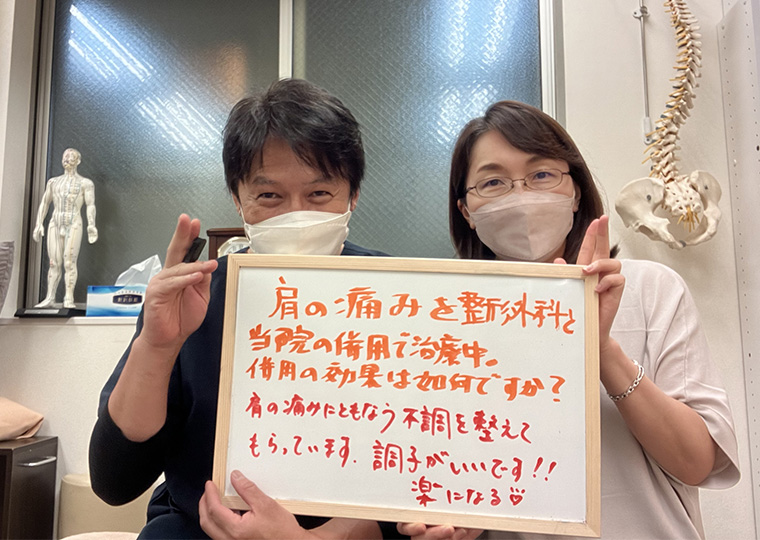 肩の痛みを整形外科と
当院の併用で治療中。
併用の効果は如何ですか?
肩の痛みにともなう不調を整えて
もらっています. 調子がいいです!!
楽になる♡